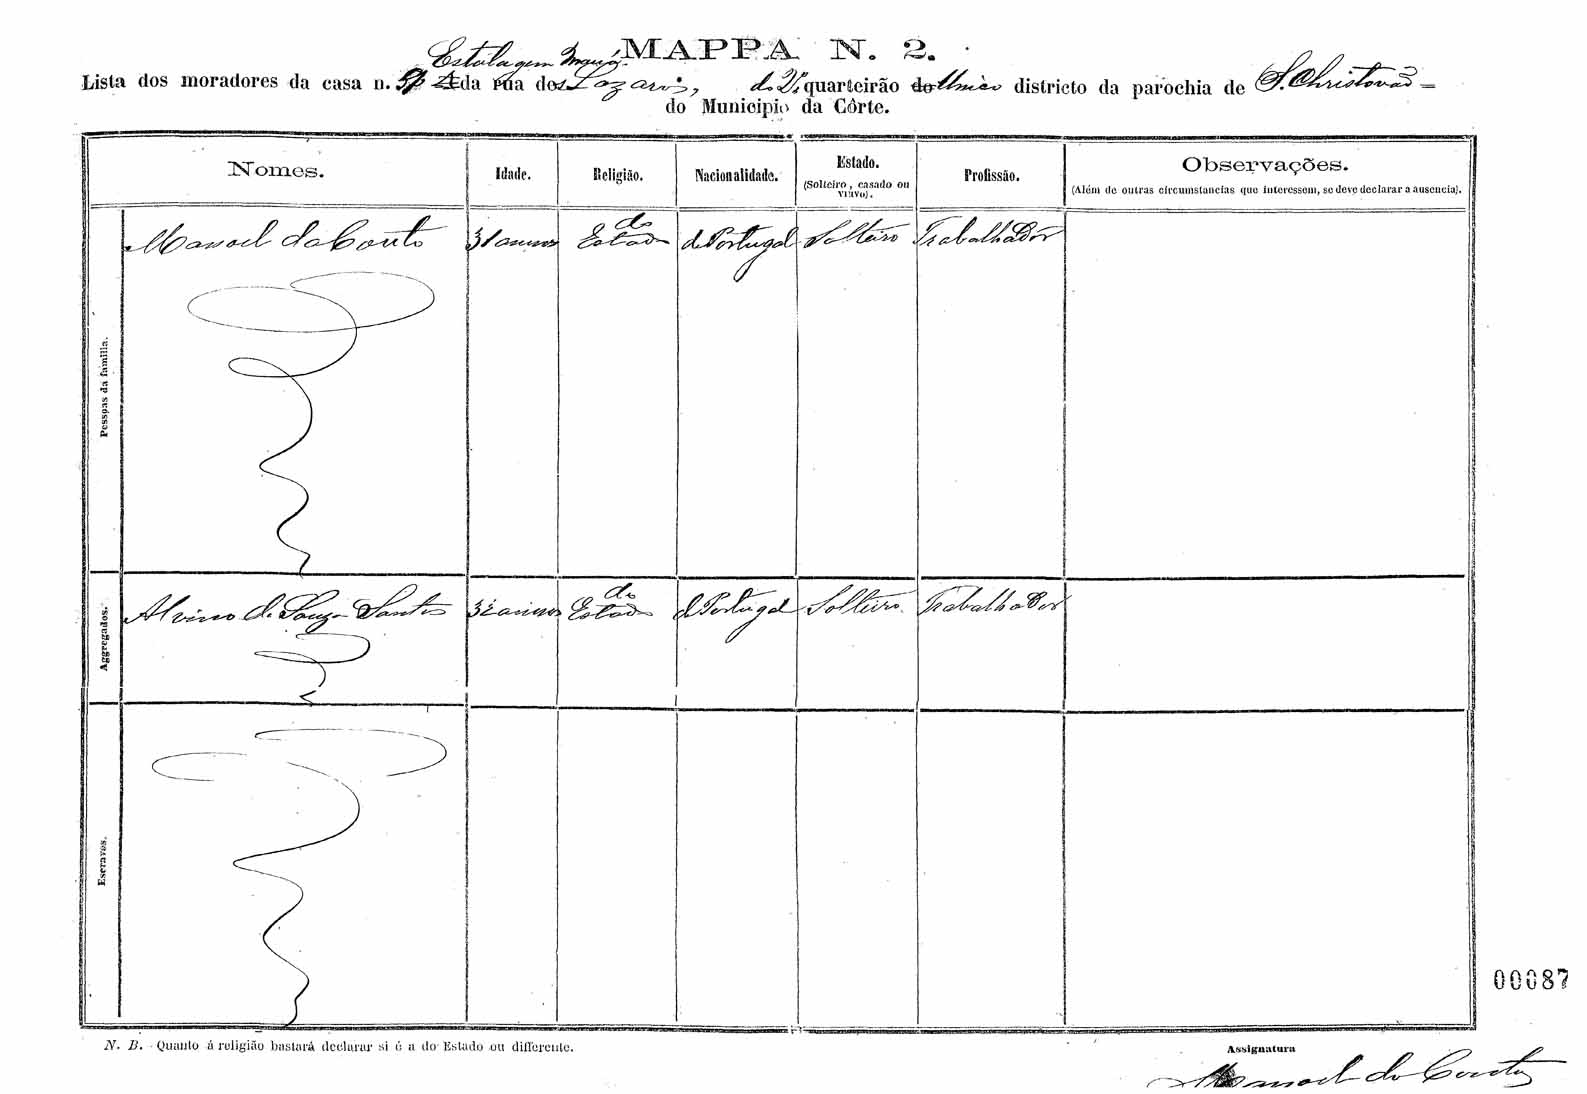 MAPPA N. 2.
Estalagem Mauá
Lista dos moradores da casa n. da rua dos Lazaros, do 2º quarteirão do Unico districto da parochia de S. Christovão
do Municipio da Côrte.
Nomes. Idade. Religião. Nacionalidade. Estado. (Solteiro, casado ou viuvo). Profissão. Observações. (Além de outras circumstancias que interessem, se deve declarar a ausencia).
Pessoas da familia.
Manoel do Couto 31 annos do Estado de Portugal Solteiro Trabalhador
Aggregados.
Alvino de Souza Santos 32 annos do Estado de Portugal Solteiro Trabalhador
Escravos.
00087
N. B. - Quanto á religião bastará declarar si é a do Estado ou differente.
Assignatura
Manoel do Couto